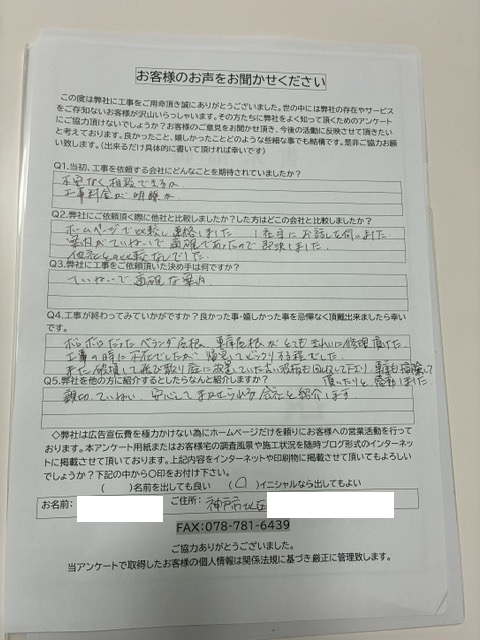 お客様のお声をお聞かせください
この度は弊社に工事をご用命頂き誠にありがとうございました。世の中には弊社の存在やサービス
をご存知ないお客様が沢山いらっしゃいます。その方たちに弊社をよく知って頂くためのアンケート
にご協力頂けないでしょうか?お客様のご意見をお聞かせ頂き、今後の活動に反映させて頂きたい
と考えております。良かったこと、嬉しかったことどのような些細な事でも結構です。是非ご協力お願
い致します。(出来るだけ具体的に書いて頂ければ幸いです)
Q1.当初、工事を依頼する会社にどんなことを期待されていましたか?
不安なく相談できるか
工事料金が明瞭か
Q2.弊社にご依頼頂く際に他社と比較しましたか?した方はどこの会社と比較しましたか?
ホームページで比較し連絡しました 1番目にお話しを伺いました
案内がていねいで適確であったので即決しました
他社との比較なしでした
Q3.弊社に工事をご依頼頂いた決め手は何ですか?
ていねいで適確な案内
Q4.工事が終わってみていかがですか?良かった事・嬉しかった事を忌憚なく頂戴出来ましたら幸い
です。
ボロボロだったベランダ屋根、車庫屋根がとてもきれいに修理頂いた。
工事の時に不在でしたが 帰宅してビックリする程でした。
また破損して飛び散り庭に放置していた古い波板も回収して下り 車庫も掃除
頂いたりと感動しました
Q5.弊社を他の方に紹介するとしたらなんと紹介しますか?
親切、ていねい、安心してまかせられる会社と紹介します
◇弊社は広告宣伝費を極力かけない為にホームページだけを頼りにお客様への営業活動を行って
おります。本アンケート用紙またはお客様宅の調査風景や施工状況を随時ブログ形式のインターネッ
トに掲載させて頂いております。上記内容をインターネットや印刷物に掲載させて頂いてもよろしい
でしょうか?下記の中から〇印をお付け下さい。
( )名前を出しても良い (〇)イニシャルなら出してもよい
お名前: ご住所: 神戸市北区
FAX:078-781-6439
ご協力ありがとうございました。
当アンケートで取得したお客様の個人情報は関係法規に基づき厳正に管理致します。